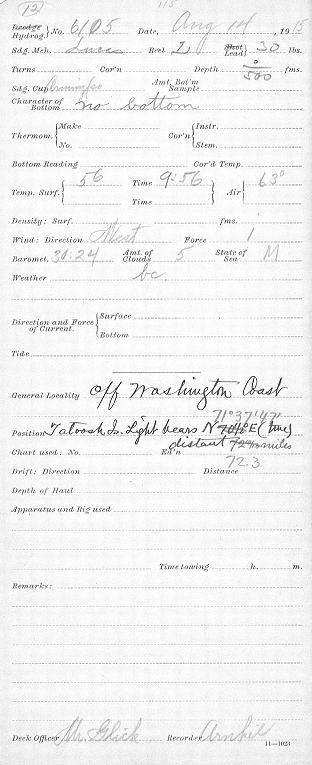 (12) 115
Dredge Hydrog. } No. 6105 Date, Aug 14, 1915
Sdg. Mch. Lucas Reel 2 Shot Lead } 30 lbs.
Turns Cor'n Depth 0/500 fms.
Sdg. Cup Amt. Bot'm Sample
Character of Bottom no bottom
Thermom. { Make Cor'n { Instr.
No. Stem.
Bottom Reading Cor'd Temp.
Temp. Surf. { 56 Time 9:56 } Air { 63°
Time
Density: Surf. fms.
Wind: Direction West Force 1
Baromet. 30:24 Amt. of Clouds 5 State of Sea M
Weather bc
Direction and Force of Current. { Surface
Bottom
Tide
General Locality Off Washington Coast
71° 37' 47"
Position Tatoosh Is. Light bears N 70½° E (true)
distant miles
Chart used: No. Ed'n 72.3
Drift: Direction Distance
Depth of Haul
Apparatus and Rig used
Time towing h. m.
Remarks:
Deck Officer Mr. Glick Recorder
11—1023